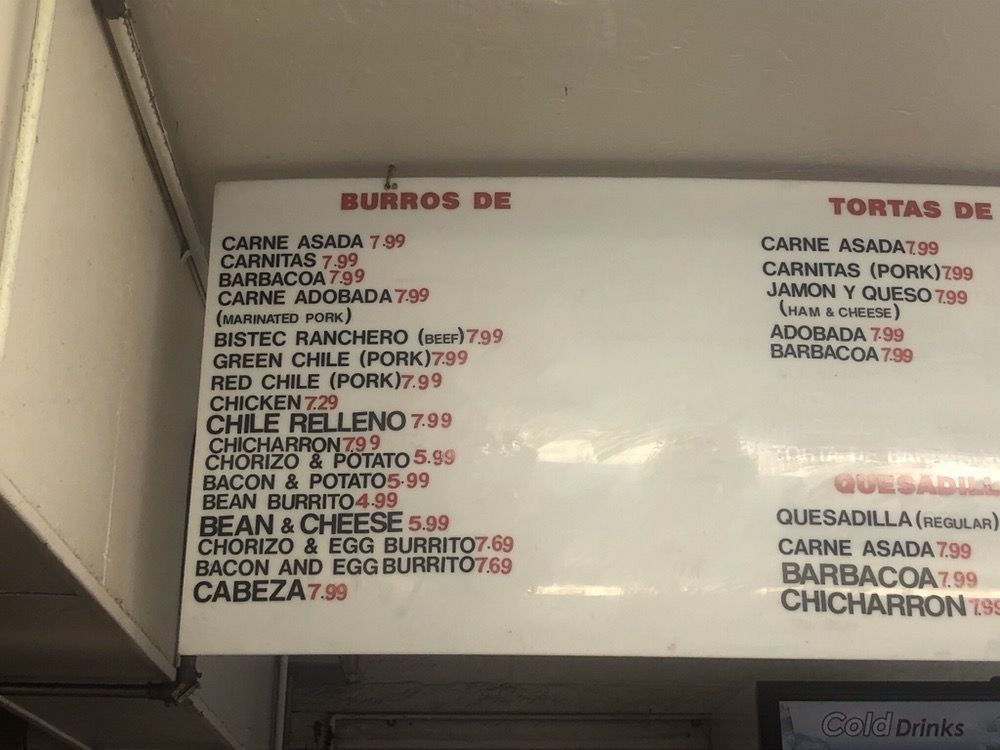 BURROS DE
CARNE ASADA 7.99
CARNITAS 7.99
BARBACOA 7.99
CARNE ADOBADA 7.99
(MARINATED PORK)
BISTEC RANCHERO (BEEF) 7.99
GREEN CHILE (PORK) 7.99
RED CHILE (PORK) 7.99
CHICKEN 7.29
CHILE RELLENO 7.99
CHICHARRON 7.99
CHORIZO & POTATO 5.99
BACON & POTATO 5.99
BEAN BURRITO 4.99
BEAN & CHEESE 5.99
CHORIZO & EGG BURRITO 7.69
BACON AND EGG BURRITO 7.69
CABEZA 7.99
TORTAS DE
CARNE ASADA 7.99
CARNITAS (PORK) 7.99
JAMON Y QUESO 7.99
(HAM & CHEESE)
ADOBADA 7.99
BARBACOA 7.99
QUESADILL
QUESADILLA (REGULAR)
CARNE ASADA 7.99
BARBACOA 7.99
CHICHARRON 7.99
Cold Drinks